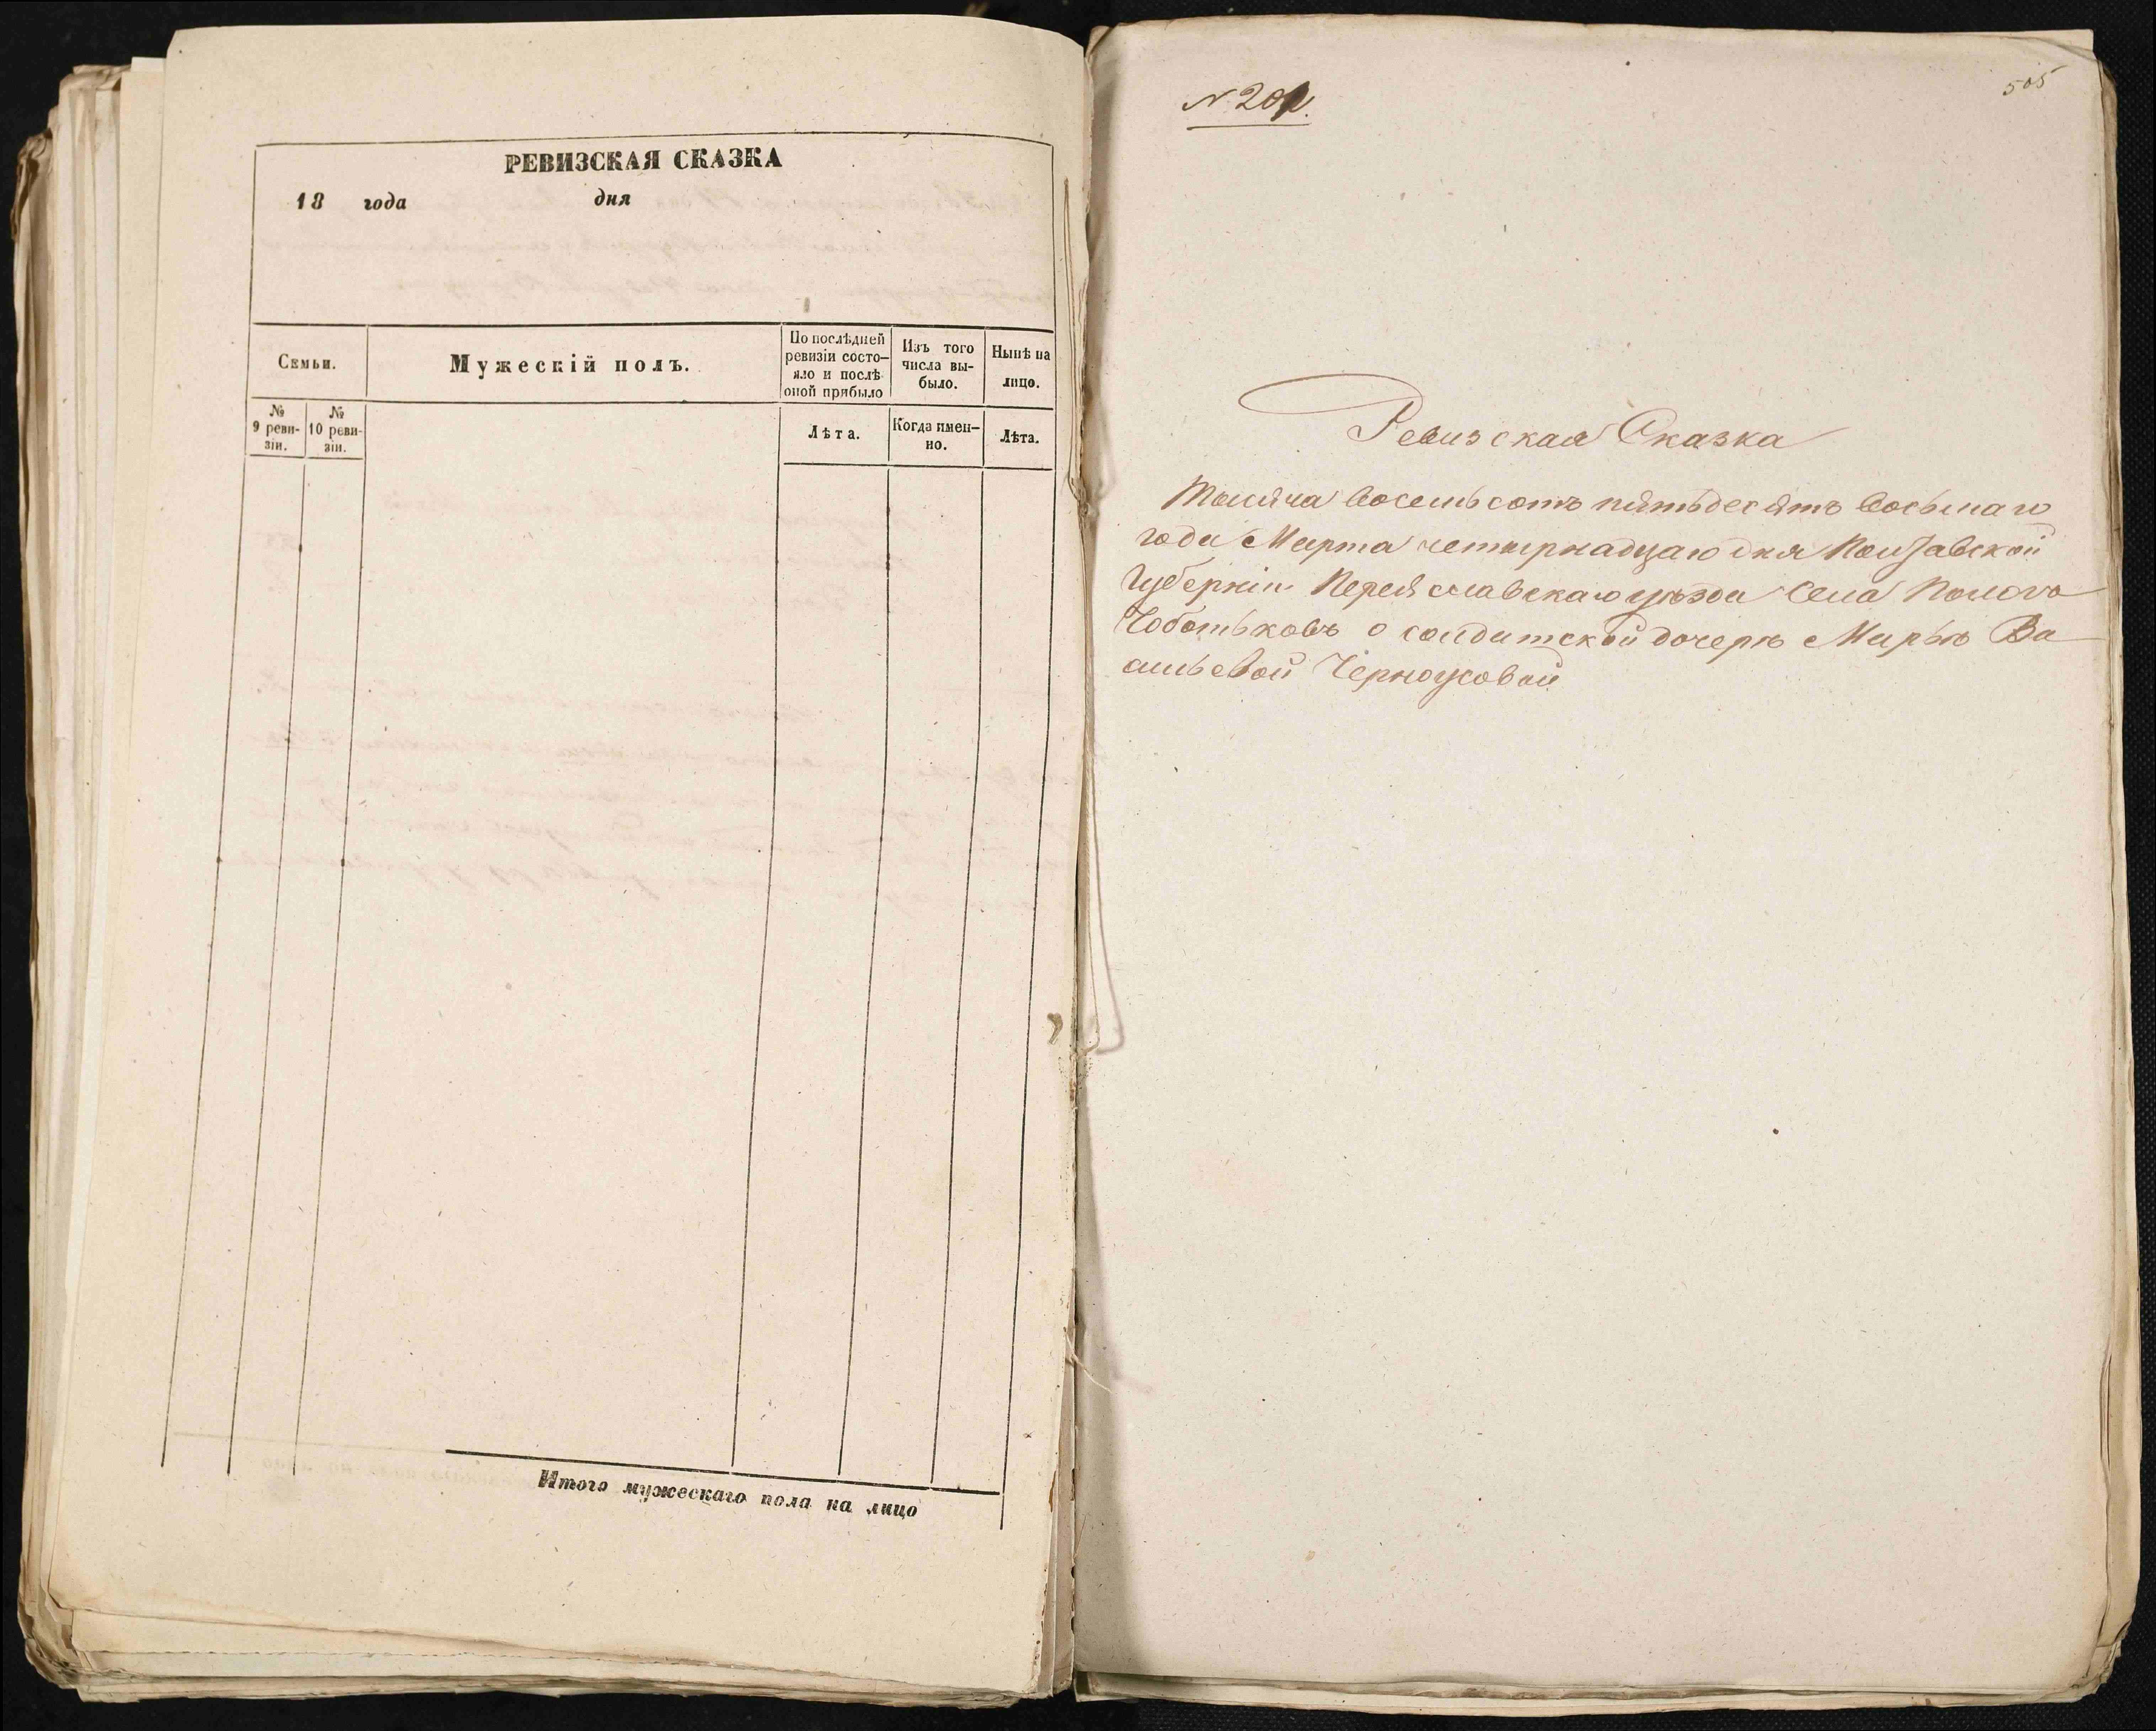 РЕВИЗСКАЯ СКАЗКА
18 года дня
Семьи.
Мужескій полъ.
По послѣдней
ревизіи состо-
яло и послѣ
оной прибыло
Изъ того
числа вы-
было.
Нынѣ на
лицо.
№
9 реви-
зіи.
№
10 реви-
зіи.
Лѣта.
Когда имен-
но.
Лѣта.
Итого мужескаго пола на лицо
505
Ревизская Сказка
Тысяча восемьсотъ пятьдесятъ восьмаго
года Марта четырнадцаго дня Полтавской
Губерніи Переяславскаго уѣзда Села
о солдатской дочерѣ Марьѣ Ва
сильевой Черноусовой